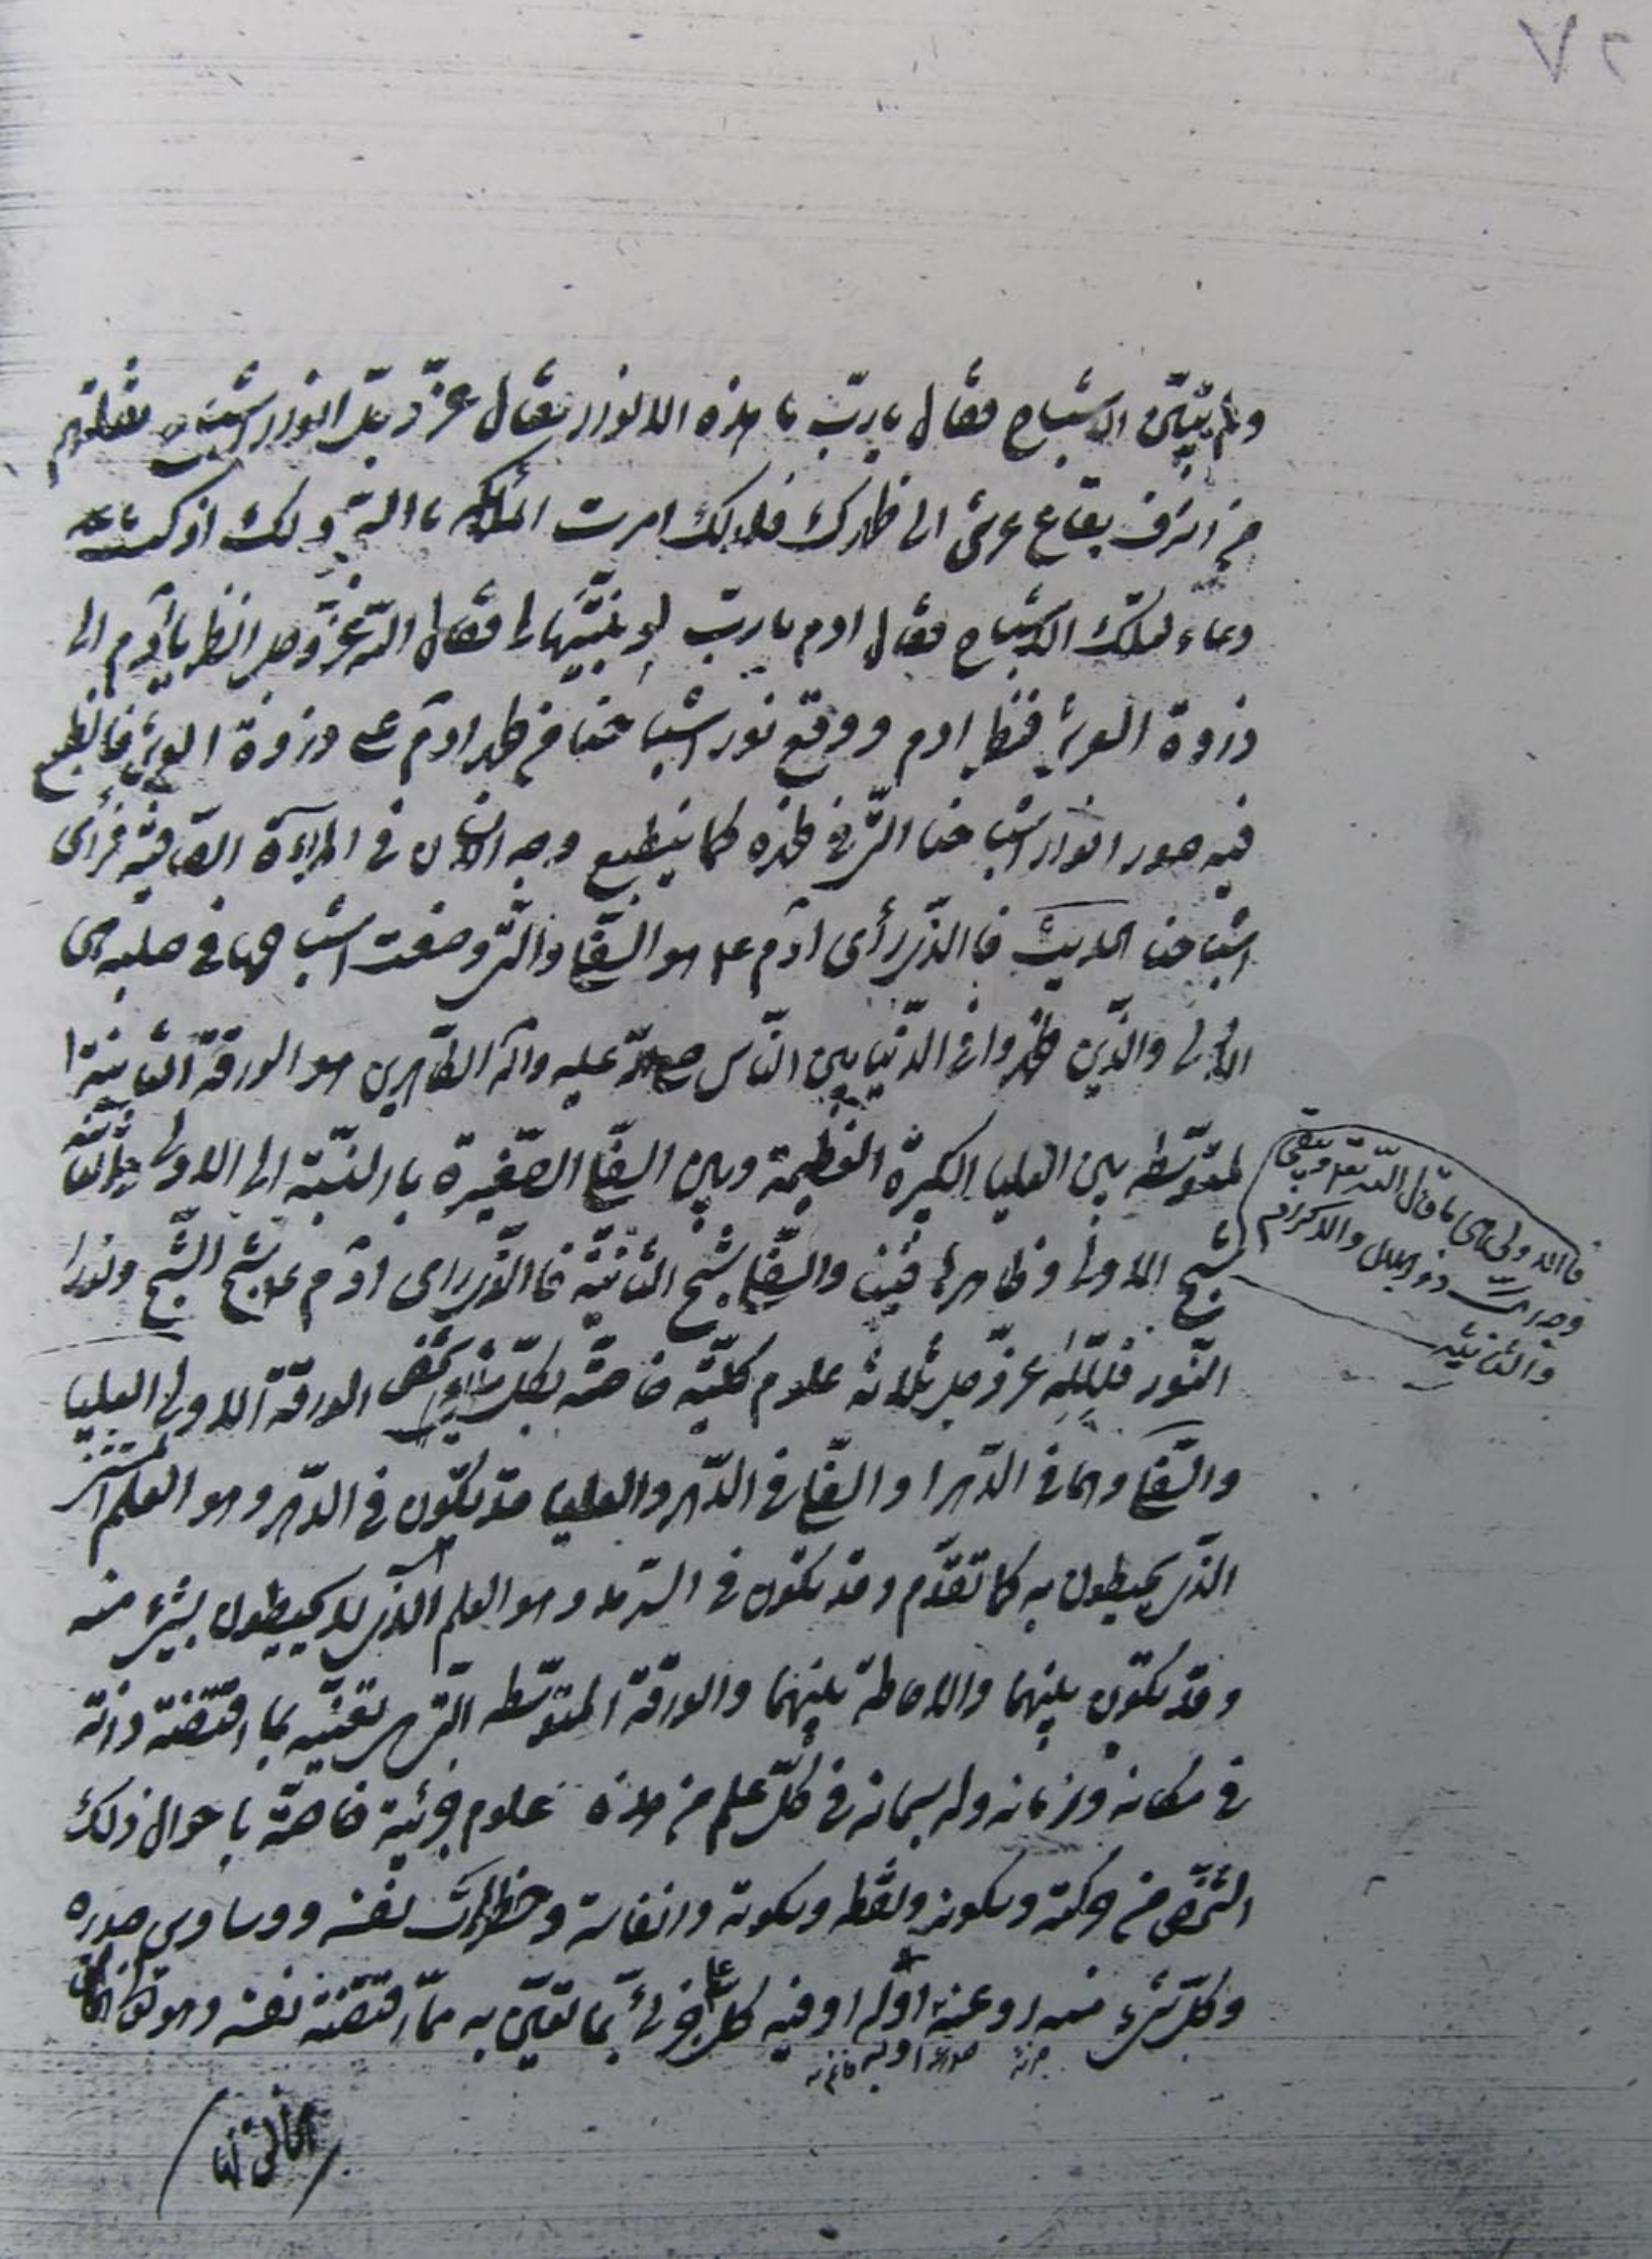 ٧٢
ولم يتبيّن الاشباح فقال يا ربّ ما هذه الانوار فقال عزّ وجلّ انوار اشباح نقلتهم
من اشرف بقاع عرشي الى ظهرك فلذلك امرت الملائكة بالسجود لك اذ كنت
وعاء لتلك الاشباح فقال ادم يا ربّ لو بيّنتها لي فقال اللّه عزّ وجل انظر يا آدم الى
ذروة العرش فنظر ادم ووقع نور اشباحنا من ظهر ادم ع على ذروة العرش فانطبع
فيه صور انوار اشباحنا التي في ظهره كما ينطبع وجه الانسان في المراءة الصّافية فرأى
اشباحنا الحديث فالذي رأى آدم ع هو السّفلى والتي وضعت اشباحها في صلبه هي
الاولى والذين ظهروا في الدّنيا بين النّاس صلى اللّه عليه وآله الطّاهرين هو الورقة الثانية
المتوسّطة بين العليا الكبيرة العظيمة وبين السفلى الصّغيرة بالنسبة الى الاولى
شبح الاولى وظاهرها فينا والسّفلى شبح الثانية فالذي راى آدم ع شبح الشّبح ونور
النّور فللّه عزّ وجل ثلاثة علوم كليّة خاصّة بكلّ شخص الورقة الاولى العليا
والسّفلى وهما في الدّهر او السّفلى في الدّهر والعليا قد يكون في الدّهر وهو العلم
الذي يحيطون به كما تقدّم وقد يكون في السّرمد وهو العلم الذي لا يحيطون بشيء منه
وقد يكون بينهما والاحاطة بينهما والورقة المتوسّطة التي هي تعيّنه بما اقتضته ذاته
في مكانه وزمانه وله سبحانه في كلّ علم من هذه علوم جزئية خاصّة باحوال ذلك
الشّخص من حركته وسكونه ولفظه وسكوته وانفاسه وخطرات نفسه ووساوس صدره
وكلّ شيء منه او عنه او له او فيه كل جزئي بما تعيّن به ممّا اقتضته نفسه وهو
فالاولى هي ما قال اللّه تعالى ويبقى
وجه ربّك ذو الجلال والاكرام
والثانية